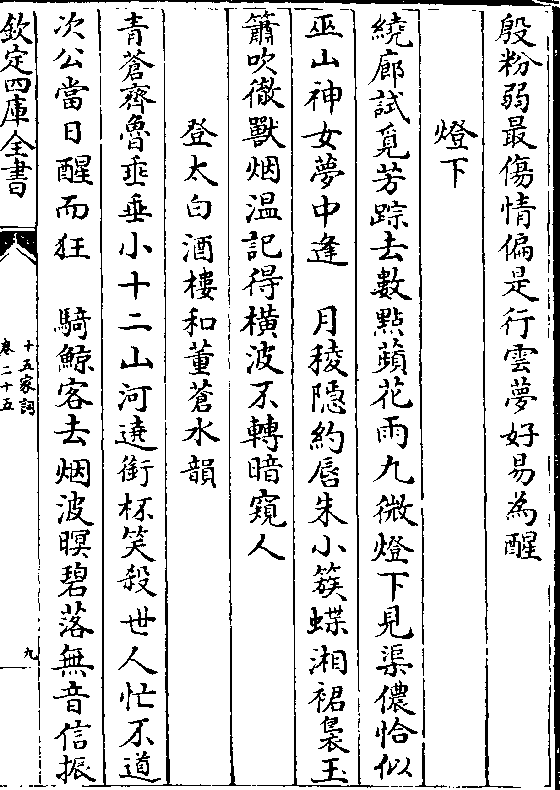 殷粉弱最傷情偏是行雲夢好易為醒
燈下
繞廊試覓芳踪去數點蘋花雨九微燈下見渠儂恰似
巫山神女夢中逢　月稜隱約唇朱小簇蝶湘裙裊玉
簫吹徹獸烟温記得橫波不轉暗窺人
登太白酒樓和董蒼水韻
青蒼齊魯垂垂小十二山河遶銜杯笑殺世人忙不道
次公當日醒而狂　騎鯨客去烟波暝碧落無音信振
欽定四庫全書
十五家詞
卷二十五
九